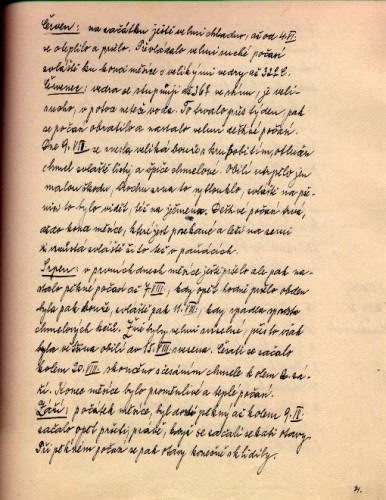 Červen: na začátku ještě velmi chladno, až od 4.VI.
se oteplilo a pršelo. Převládalo velmi suché počasí
zvláště ku konci měsíce s velikými vedry až 32% C.
Červenec: vedra se stupňují až 36% ve stínu, je veli-
sucho, v potoce neteče voda. To trvalo přes týden, pak
se počasí obrátilo a nastalo velmi deštivé počasí.
Dne 9.VII. se snesla veliká bouře s krupobitím, otloukán
chmel zvláště listy a špice chmelové. Obilí utrpělo jen
malou škodu, trochu zrna to vytlouklo, zvláště na pše-
nici to bylo vidět, též na ječmenu. Deštivé počasí trvá,
až do konce měsíce, žito jest posekané a leží na zemi
a zvláště to též v panácích.
Srpen: v prvních dnech měsíce ještě pršelo ale pak na-
stalo pěkné počasí až 7.VIII., kdy opět hodně pršelo obden
byla pak bouře, zvláště pak 11.VIII., kdy spadla spousta
chmelových keřů. Žně byly velmi svízelné, přesto však
byla většina obilí do 15.VIII. svezena. Česati se začalo
kolem 20.VIII. skončeno s česáním chmele kolem 2. zá-
ří. Konec měsíce bylo proměnlivé a teplé počasí.
Září: počátek měsíce, byl dosti pěkný až kolem 9.IX.
začalo opět pršeti, právě, když se začali sekati otavy.
Při pěkném počasí se pak otavy konečně sklidily.